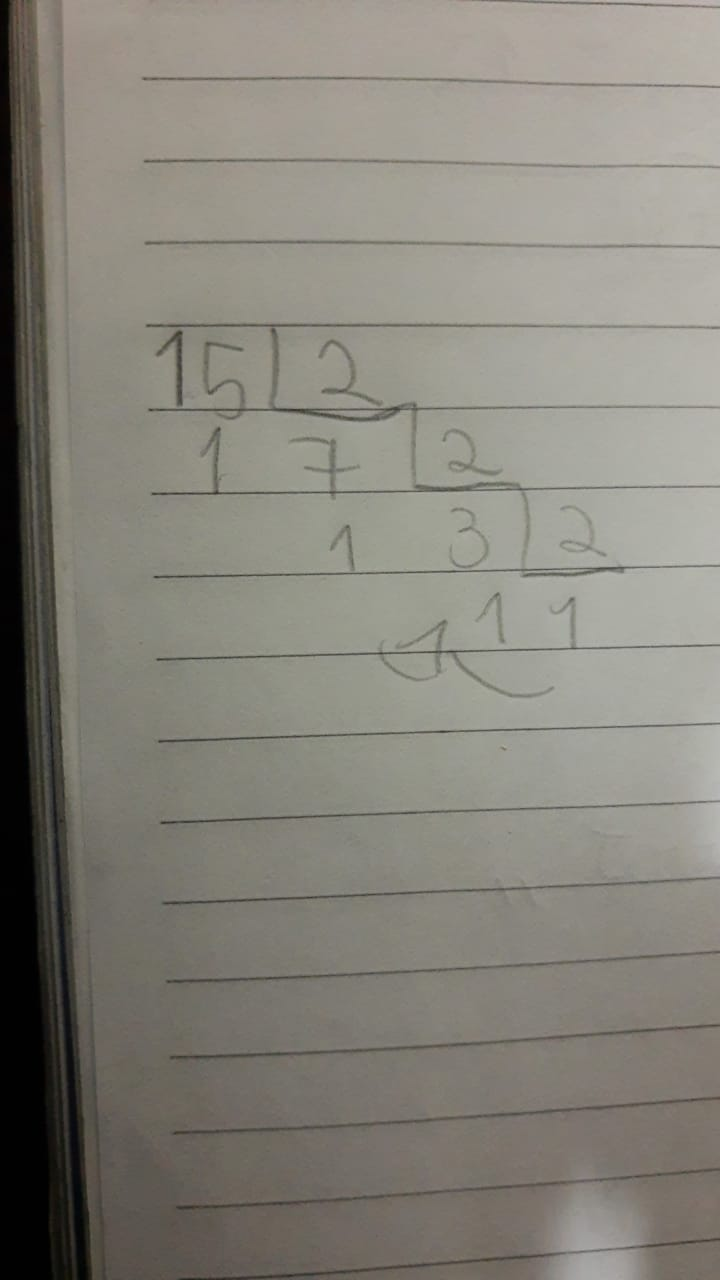 15 2
1 7 2
1 3 2
1 1